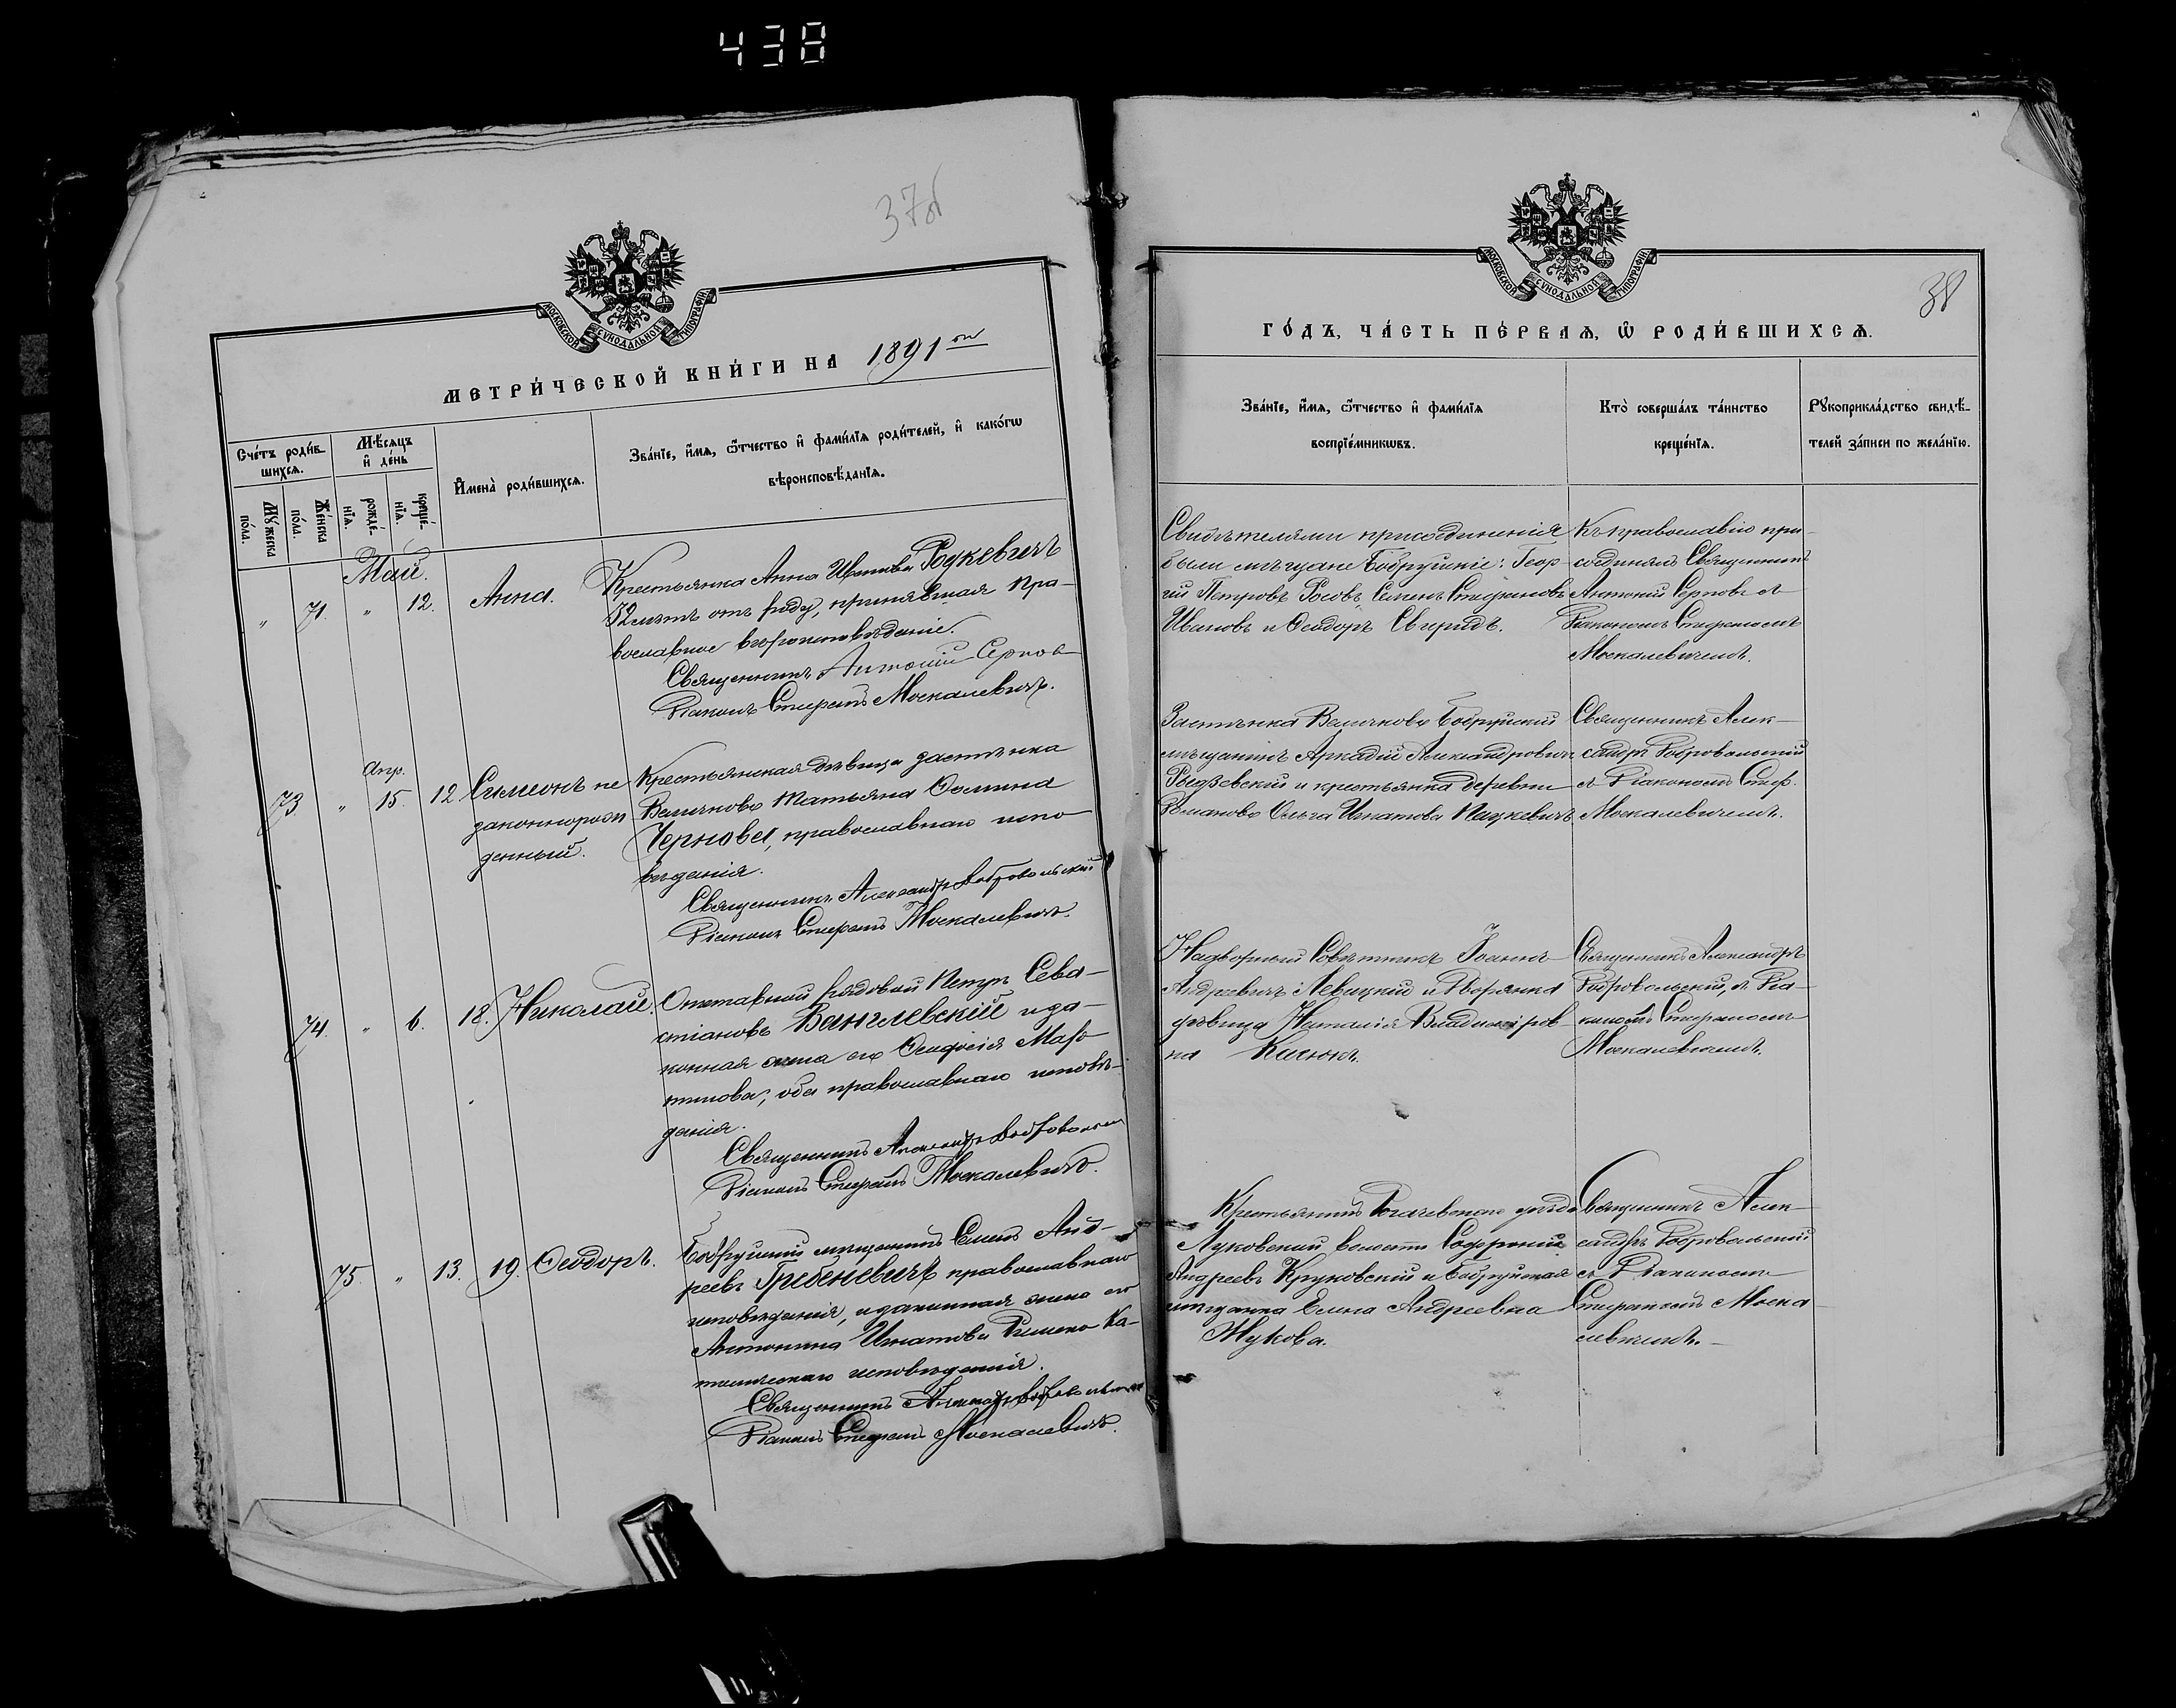 438
37об
МОСКОВСКОЙ СѴНОДАЛЬНОЙ ТИПОГРАФІИ
МЕТРИ́ЧЕСКОЙ КНИ́ГИ НА 1891
Сче́тъ роди́в-
шихсѧ.
Мѣ́сѧцъ
и҆ де́нь
И҆мена̀ роди́вшихсѧ.
Зва́нїе, и҆́мѧ, ѻ҆́тчество и҆ фами́лїѧ роди́телей, и҆ како́гѡ
вѣроисповѣ́данїѧ.
Мꙋ́жеска
по́ла.
Же́нска
по́ла.
рожде́-
нїѧ.
креще́-
нїѧ.
Май.
" 71. " 12. Анна.
Крестьянка Анна Иванова Родкевичъ
32 лѣтъ отъ роду, принявшая пра-
вославное вѣроисповѣданіе.
Священникъ Антоній Серпов
Діаконъ Стефанъ Москалевичъ.
Апр.
73. " 15. 12 Симеонъ не
законнорож
денный.
Крестьянская дѣвица застѣнка
Величково Татьяна Ѳомина
Чернова, православнаго испо
вѣданія.
Священникъ Александръ Добровольскій
Діаконъ Стефанъ Москалевичъ.
74. " 6. 18. Николай.
Отставной рядовой Петръ Сева-
стіановъ Вангилевскій и за-
конная жена его Ѳеодосія Мар
тинова, оба православнаго исповѣ-
данія.
Священникъ Александръ Добровольскій
Діаконъ Стефанъ Москалевичъ.
75. " 13. 19. Ѳеодоръ.
Бобруйскій мѣщанинъ Емел Анд-
реевъ Гребеневичъ православнаго
исповѣданія, и законная жена его
Антонина Игнатова Римско Ка-
толическаго исповѣданія.
Священникъ Александръ Добровольскій
Діаконъ Стефанъ Москалевичъ.
МОСКОВСКОЙ СѴНОДАЛЬНОЙ ТИПОГРАФІИ
38
ГО́ДЪ, ЧА́СТЬ ПЕ́РВАѦ, Ѽ РОДИ́ВШИХСѦ.
Зва́нїе, и҆́мѧ, ѻ҆́тчество и҆ фами́лїѧ
воспрїе́мникѡвъ.
Кто̀ соверша́лъ та́инство
креще́нїѧ.
Рꙋкоприкла́дство свидѣ́-
телей за́писи по жела́нїю.
Свидѣтелями присоединенія
были мѣщане Бобруйскіе: Геор-
гій Петровъ Росовъ, Семенъ Стефановъ
Ивановъ и Ѳеодоръ Свиридъ.
Къ православію при-
соединялъ Священникъ
Антоній Серповъ съ
Діакономъ Стефаномъ
Москалевичемъ.
Застѣнка Величково Бобруйскій
мѣщанинъ Аркадій Александровичъ
и крестьянка деревни
Романово Ольга Игнатова Пацкевичъ
Священникъ Алек-
сандръ Добровольскій
съ Діакономъ Стеф.
Москалевичемъ.
Надворный Совѣтникъ Іоаннъ
Андреевичъ Левицкій и Дворянка
дѣвица Наталія Владиміров-
на
Священникъ Александръ
Добровольскій, съ Діа-
кономъ Стефаномъ
Москалевичемъ.
Крестьянинъ Рогачевскаго уѣзда
Луковской волости Софроній
Андреевъ Круковскій и Бобруйская
мѣщанка Елена Андреевна
Жукова.
Священникъ Алек-
сандръ Добровольскій
съ Діакономъ
Стефаномъ Моска-
левичемъ.